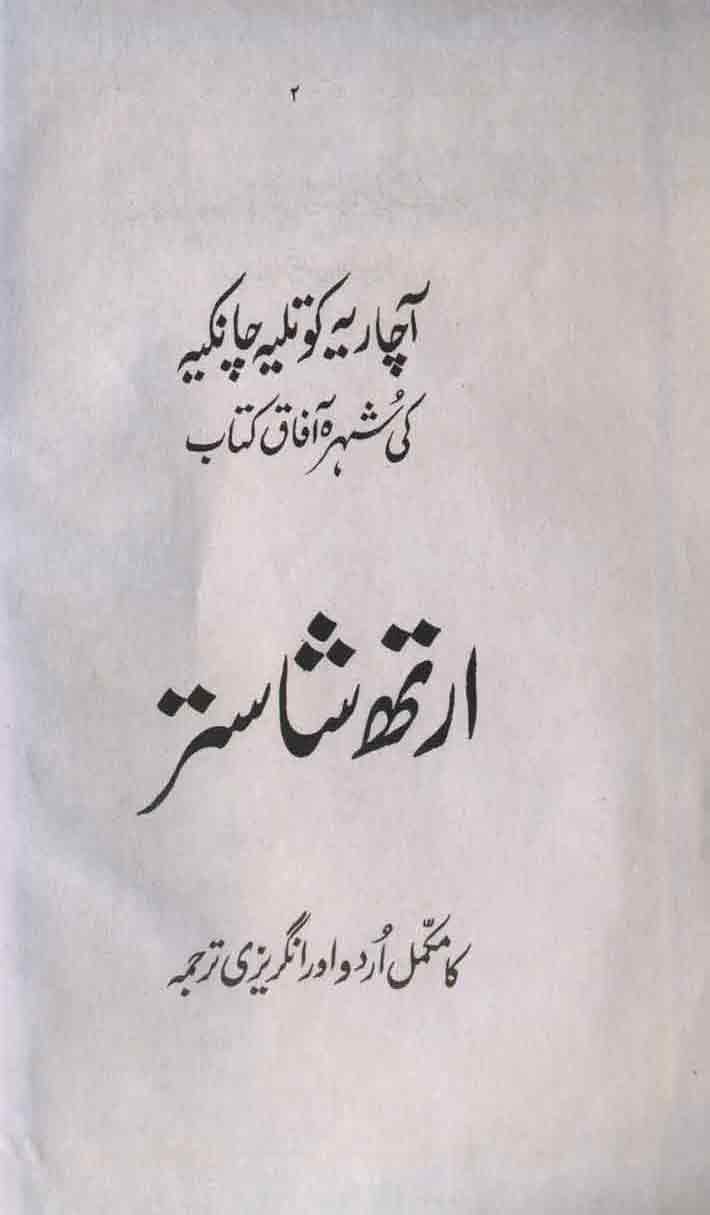 ۲
آچاریہ کوتلیہ چانکیہ
کی شُہرہ آفاق کتاب
ارتھ شاستر
کا مکمّل اُردو اور انگریزی ترجمہ